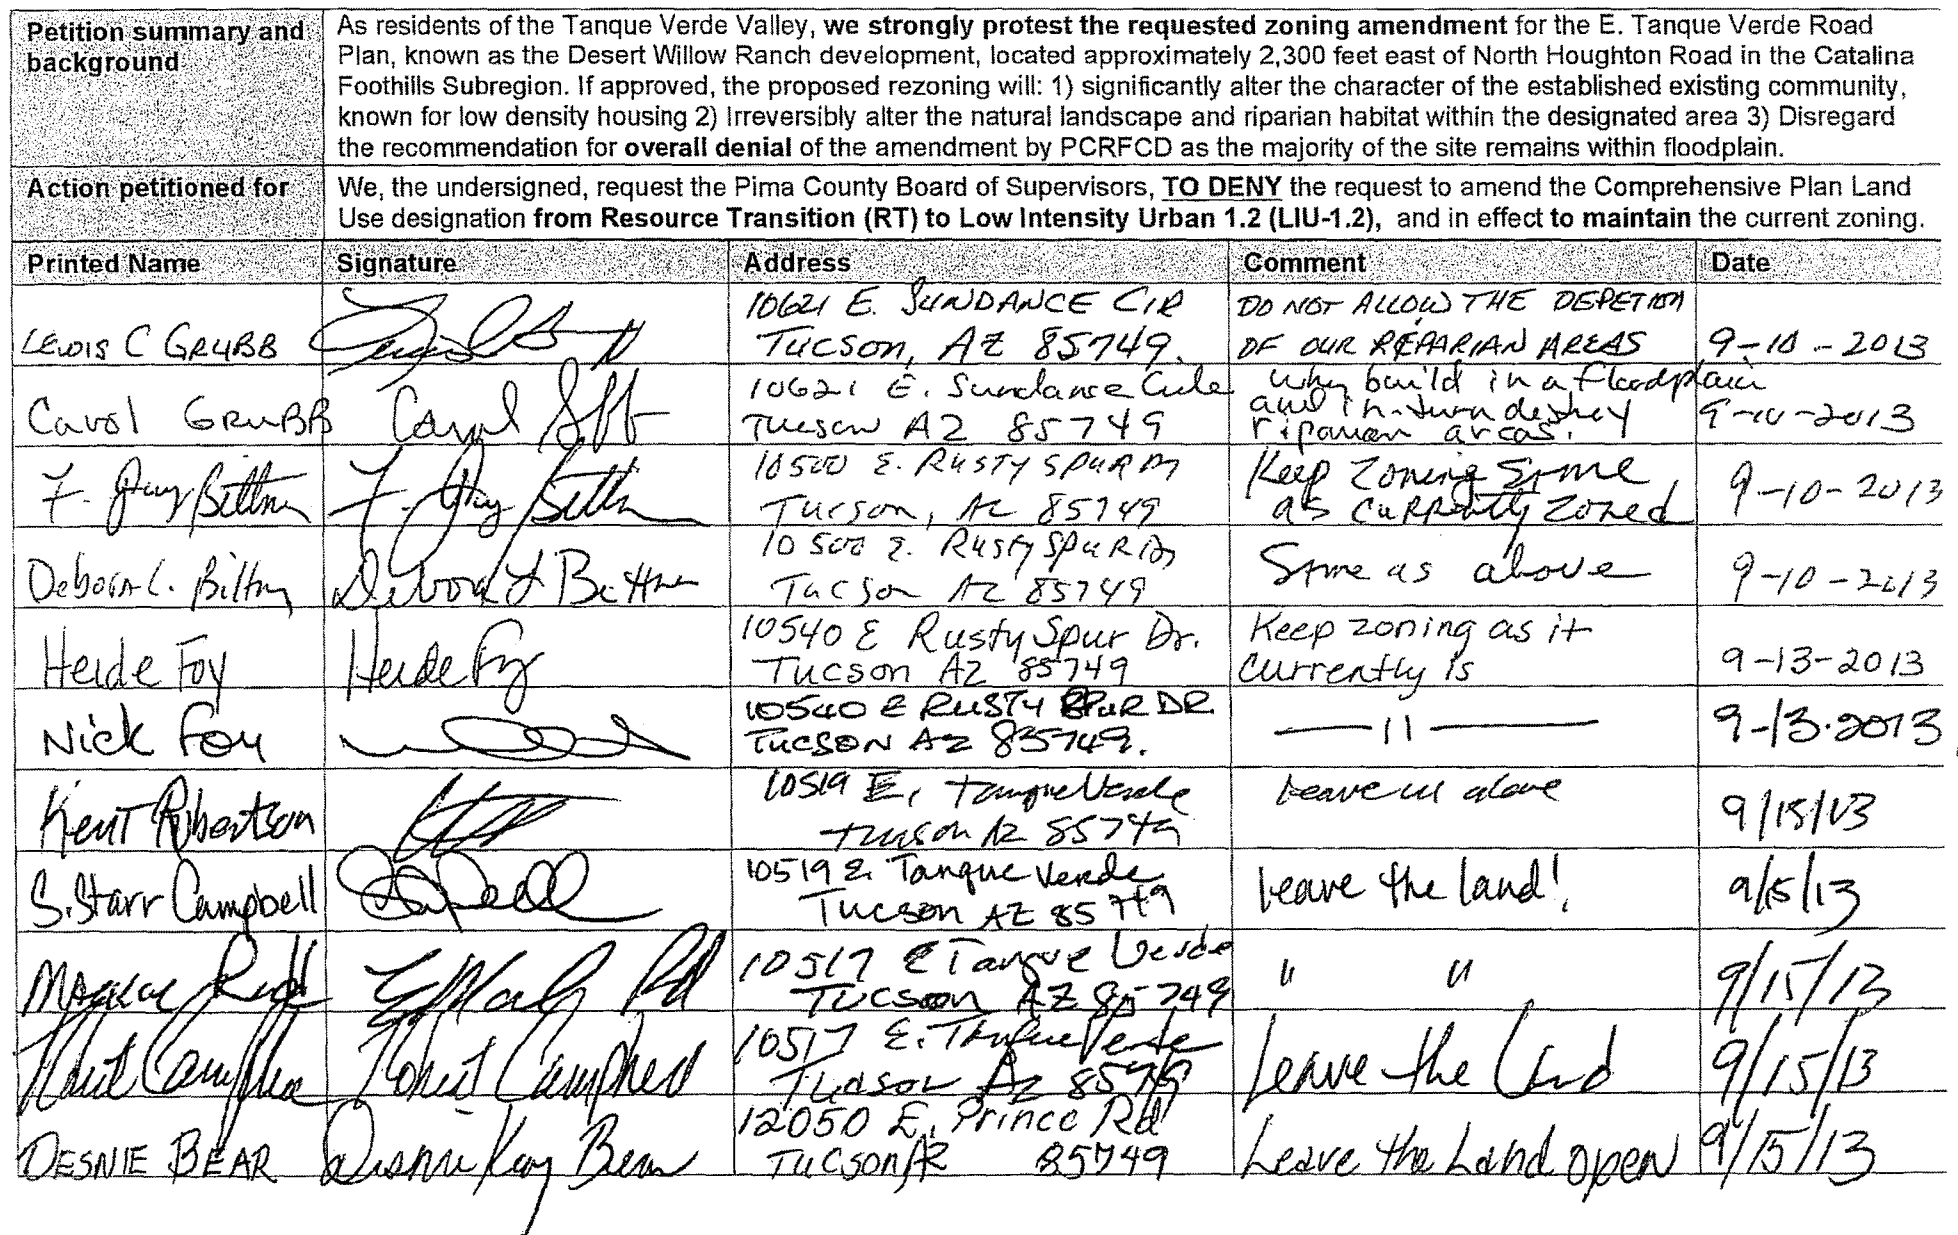 Petition summary and background
As residents of the Tanque Verde Valley, we strongly protest the requested zoning amendment for the E. Tanque Verde Road
Plan, known as the Desert Willow Ranch development, located approximately 2,300 feet east of North Houghton Road in the Catalina
Foothills Subregion. If approved, the proposed rezoning will: 1) significantly alter the character of the established existing community,
known for low density housing 2) Irreversibly alter the natural landscape and riparian habitat within the designated area 3) Disregard
the recommendation for overall denial of the amendment by PCRFCD as the majority of the site remains within floodplain.
Action petitioned for
We, the undersigned, request the Pima County Board of Supervisors, TO DENY the request to amend the Comprehensive Plan Land
Use designation from Resource Transition (RT) to Low Intensity Urban 1.2 (LIU-1.2), and in effect to maintain the current zoning.
Printed Name Signature Address Comment Date
LEWIS C GRUBB
10621 E. SUNDANCE CIR
TUCSON, AZ 85749.
DO NOT ALLOW THE DEPETION
OF OUR REPARIAN AREAS
9-10-2013
Carol GRUBB
10621 E. Sundance Circle
Tucson AZ 85749
why build in a floodplain
and in-turn destroy
riparian areas.
9-10-2013
F. Jay Bittner F. Jay Bittner
10500 E. RUSTY SPUR Dr
Tucson, AZ 85749
Keep Zoning Same
as currently zoned
9-10-2013
Deborah L. Bittner Deborah L Bittner
10500 E. Rusty SPUR Dr
Tucson AZ 85749
Same as above
9-10-2013
Heide Foy Heide Foy
10540 E Rusty Spur Dr.
Tucson AZ 85749
Keep zoning as it
currently is
9-13-2013
Nick Foy
10540 E RUSTY SPUR DR.
TUCSON AZ 85749.
— 11 —
9-13-2013
Kent Robertson
10519 E, Tanque Verde
Tucson Az 85749
Leave us alone
9/15/13
S. Starr Campbell
10519 E. Tanque Verde
Tucson AZ 85749
Leave the land!
9/15/13
10517 E Tanque Verde
TUCSON AZ 85749
" "
9/15/13
Robert Campbell Robert Campbell
10517 E. Tanque Verde
Tucson Az 85749
Leave the Land
9/15/13
DESNIE BEAR Desnie Kay Bear
12050 E. Prince Rd
Tucson AZ 85749
Leave the Land open
9/15/13